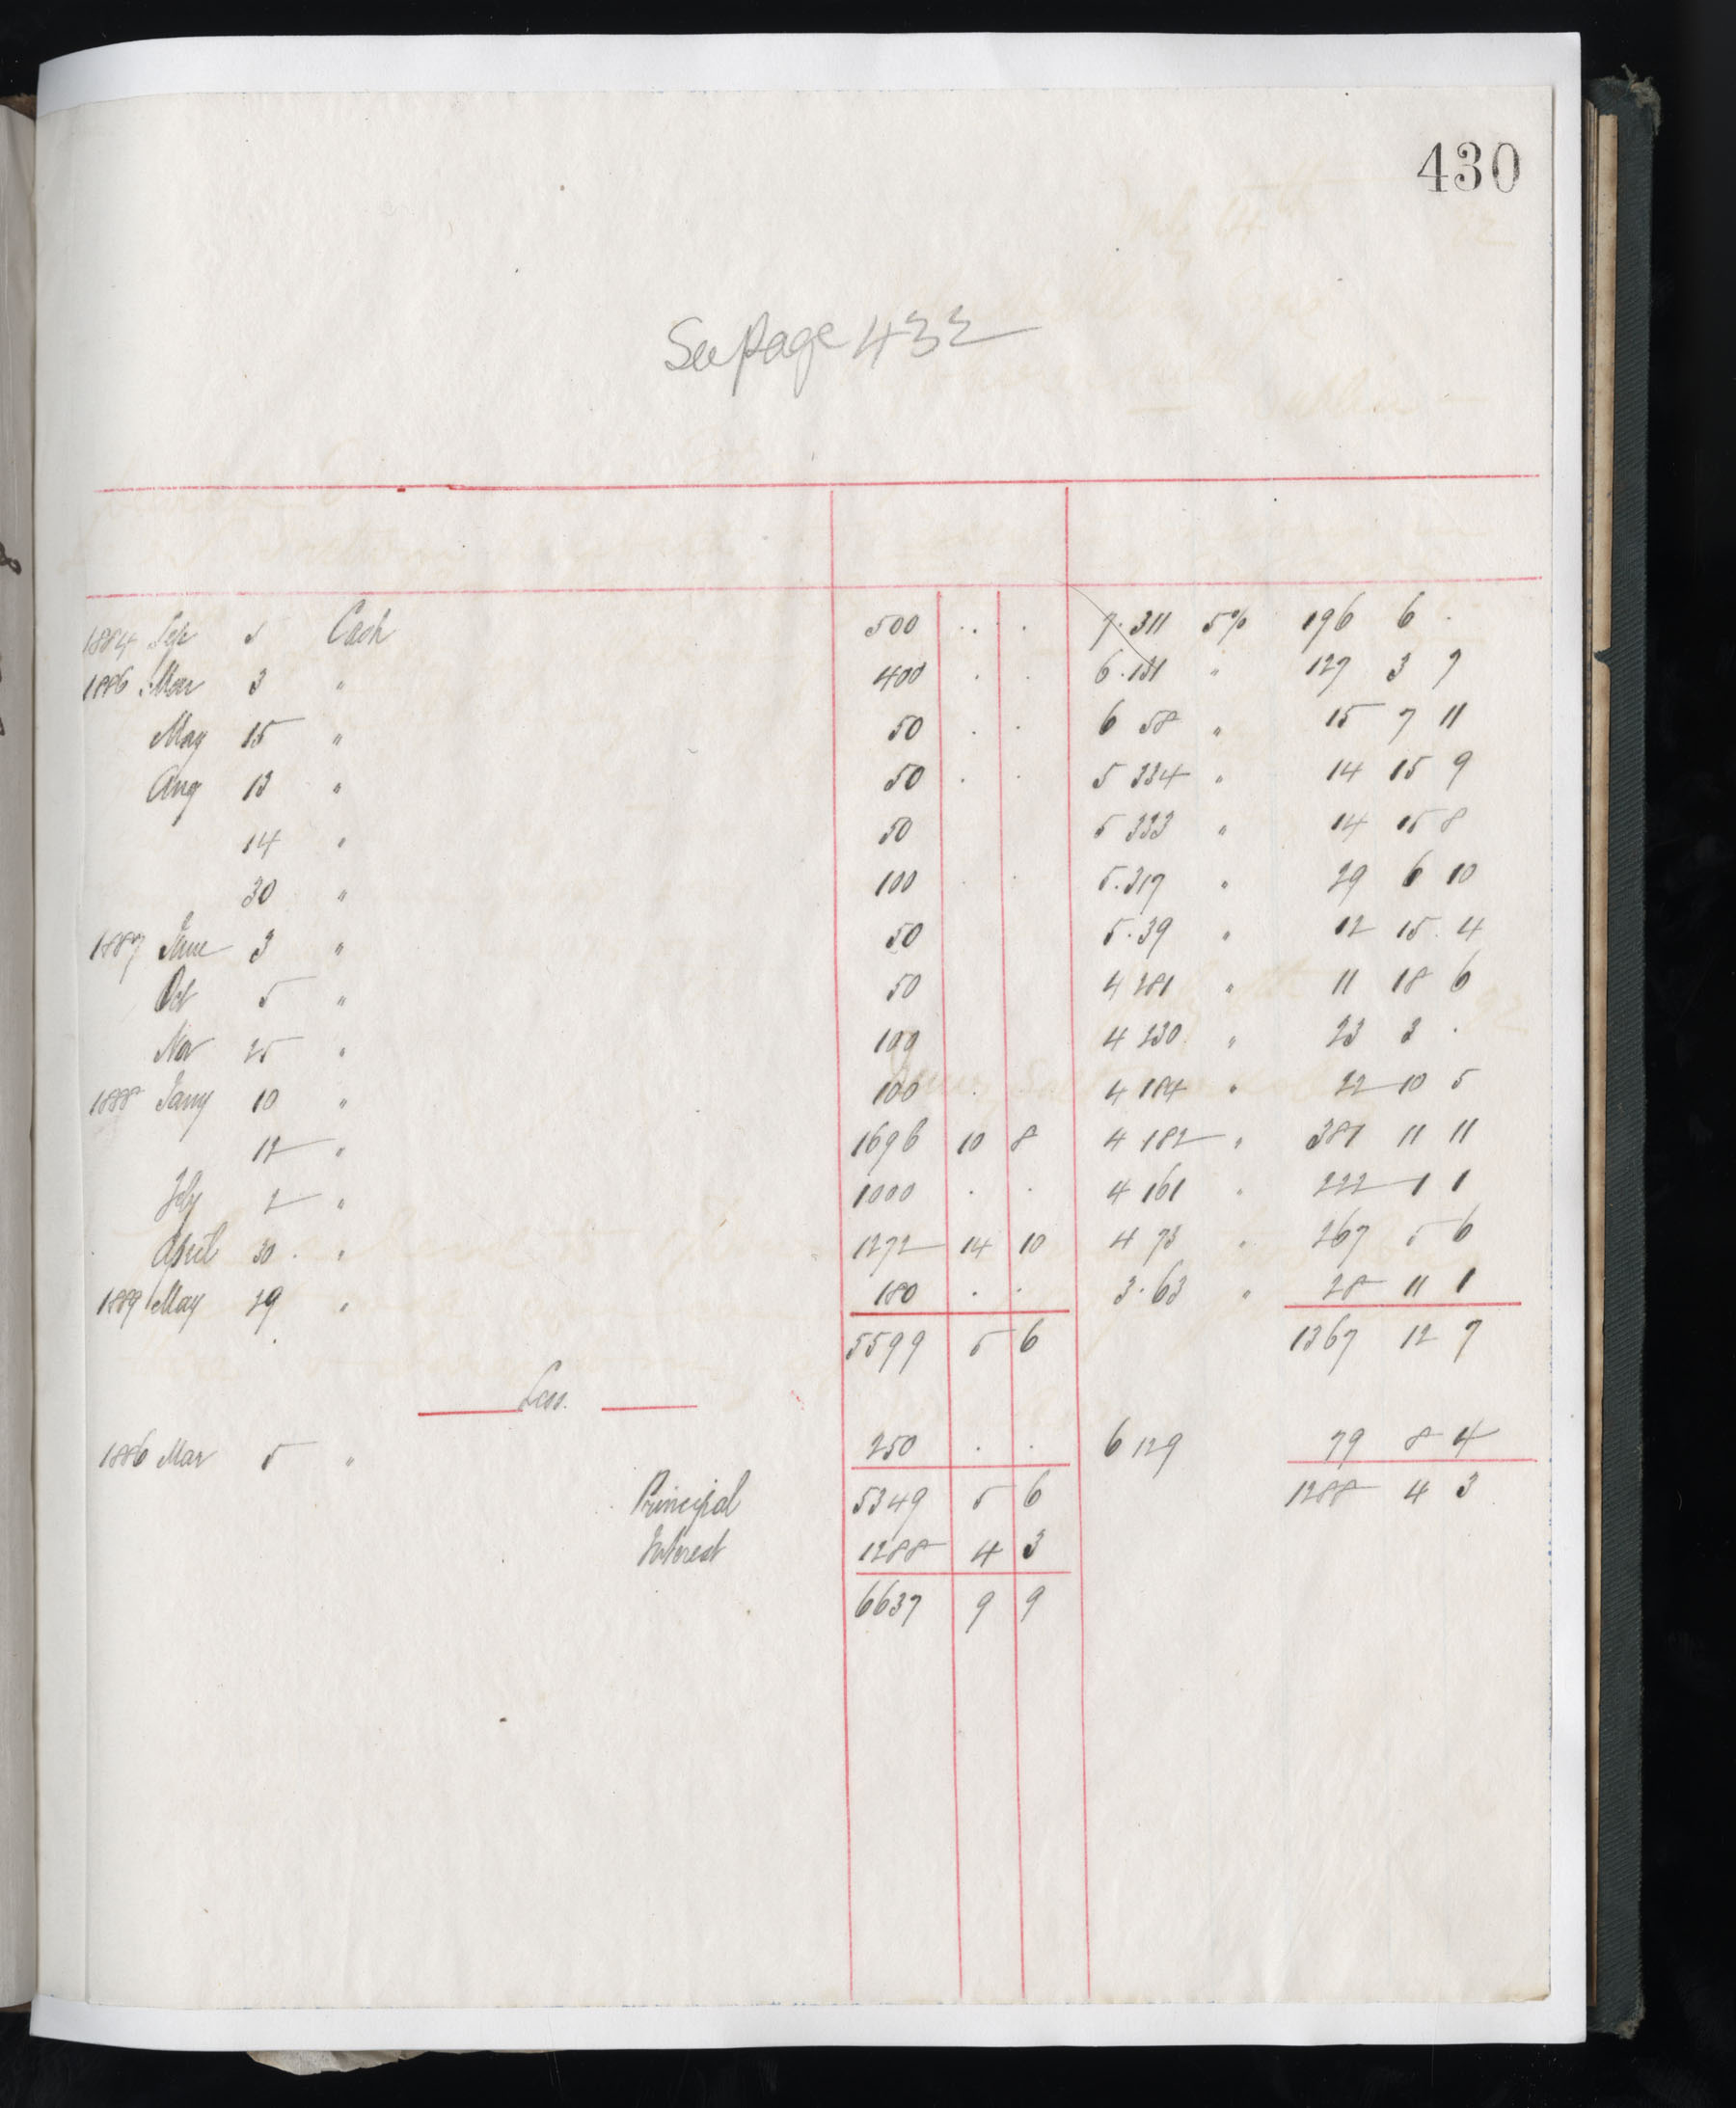 430
See Page 432
1884 Sep 5 Cash 500 .. . 7.311 5% 196 6 .
1886 Mar 3 " 400 . . 6.131 " 127 3 7
May 15 " 50 . . 6 58 " 15 7 11
Aug 13 " 50 . . 5 334 " 14 15 9
14 " 50 5 333 " 14 15 8
30 " 100 . . 5.317 " 29 6 10
1887 June 3 " 50 5.39 " 12 15.4
Oct 5 " 50 4 281 " 11 18 6
Nov 25 " 100 4 230 " 23 3 .
1888 Jany 10 " 100 . . 4 184 " 22 10 5
12 " 1696 10 8 4 182 " 381 11 11
2 " 1000 . . 4 161 " 222 1 1
April 30 . " 1272 14 10 4 73 " 267 5 6
1889 May 29 " 180 . . 3.63 " 28 11 1
5599 5 6 1367 12 7
Less.
1886 Mar 5 " 250 . . 6 129 79 8 4
Principal 5349 5 6 1288 4 3
Interest 1288 4 3
6637 9 9